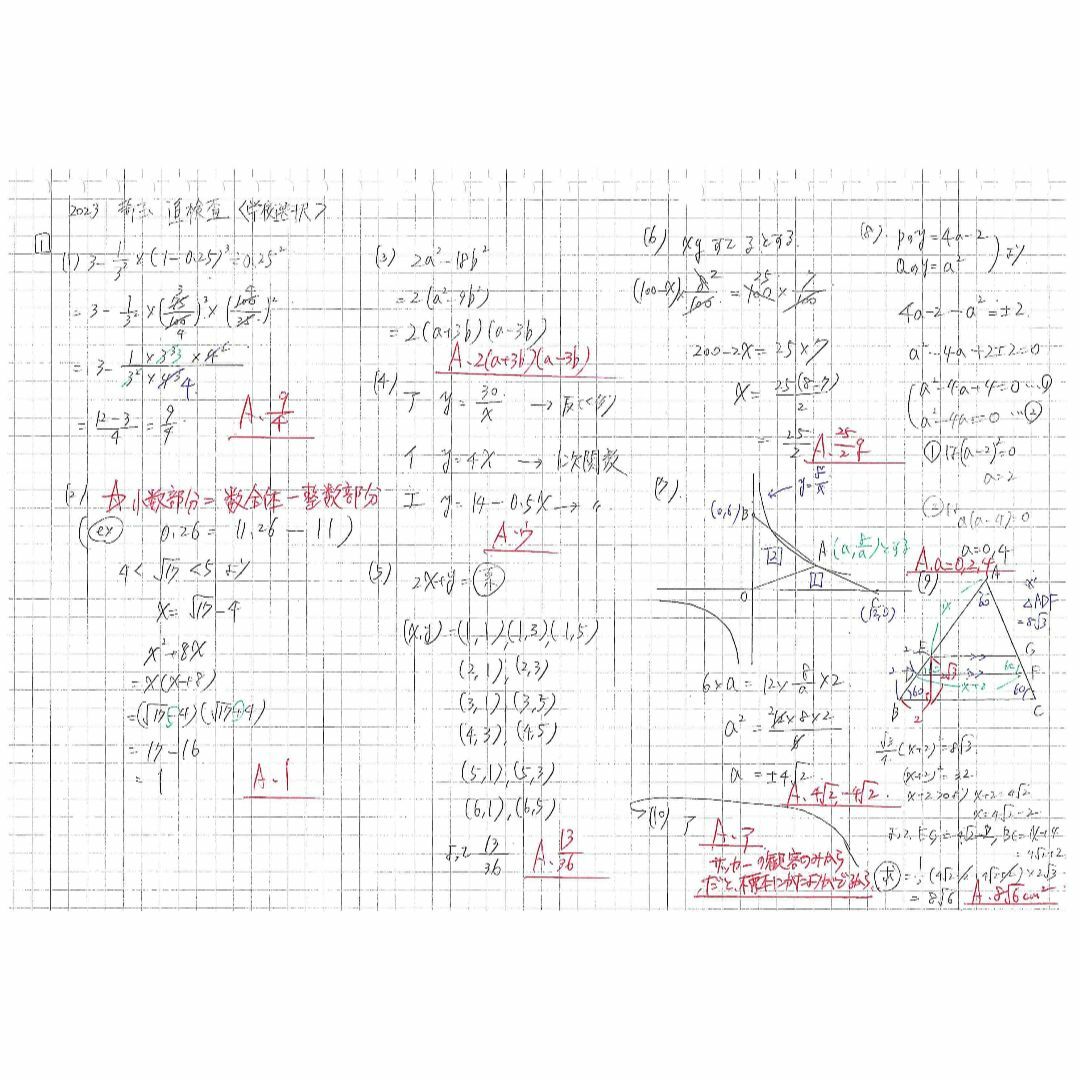 2023 <学校選択>
1
(1) 3 - 1/3² × (1 - 0.25)³ ÷ 0.25²
= 3 - 1/3² × (75/100)³ × (100/25)²
= (12-3)/4 = 9/4
A. 9/4
(2) 小数部分 = 数全体 - 整数部分
(ex) 0.26 = 11.26 - 11)
4 < √17 < 5 より
x = √17 - 4
x² + 8x
= x(x+8)
= (√17 - 4)(√17 + 4)
= 17 - 16
= 1
A. 1
(3) 2a² - 18b²
= 2(a² - 9b²)
= 2(a+3b)(a-3b)
A. 2(a+3b)(a-3b)
(4)
ア y = 30/x → 反比例
イ y = 4x → 1次関数
エ y = 14 - 0.5x → 〃
A. ウ
(5) 2x+y = 素
(x,y) = (1,1),(1,3)(1,5)
(2,1),(2,3)
(3,1),(3,5)
(4,3),(4,5)
(5,1),(5,3)
(6,1),(6,5)
よって 13/36
A. 13/36
(6) xg すてるとする.
(100-x) × 8/100 = 100 × 7/100
200 - 2x = 25 × 7
x = 25(8-7)/2
= 25/2
A. 25/2 g
(7).
y = 8/x
(0,6) B
A (a, 8/a) とする
[2]
[1]
O
C
(12,0)
6 × a = 12 × 8/a × 2
a = ±4√2
A. 4√2, -4√2
(8). Pのy = 4a - 2
Qのy = a²
) より
4a - 2 - a² = ±2
a² - 4a + 2 ± 2 = 0
a² - 4a + 4 = 0 …①
a² - 4a = 0 …②
①は (a-2)² = 0
a = 2
②は
a(a-4) = 0
a = 0, 4
A. a = 0, 2, 4
(9)
A
60
※
△ADF
= 8√3
x
2
E
G
2
D
F
60
2√3
x+2
B
60
60
C
2
√3/4 (x+2)² = 8√3
(x+2)² = 32
x+2>0より x+2 = 4√2
x = 4√2 - 2
= 4√2+2
求
= 8√6
A. 8√6 cm²
(10) ア
A. ア
サッカーの観客のみから
だと、標本にかたよりがでるから.